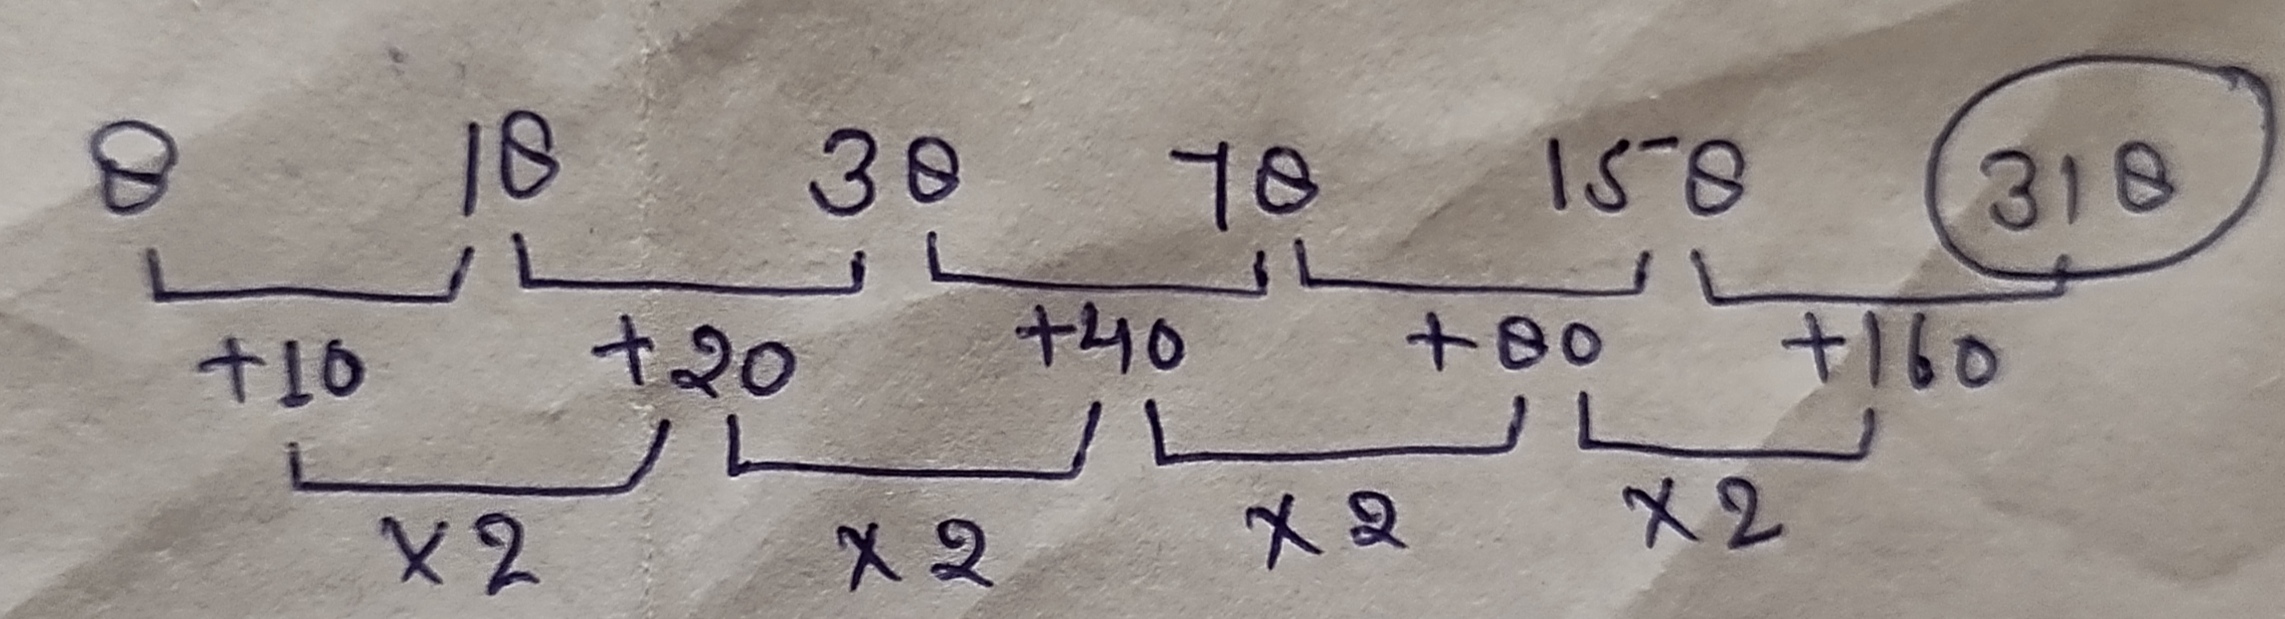 8 18 38 78 158 318
+10 +20 +40 +80 +160
×2 ×2 ×2 ×2